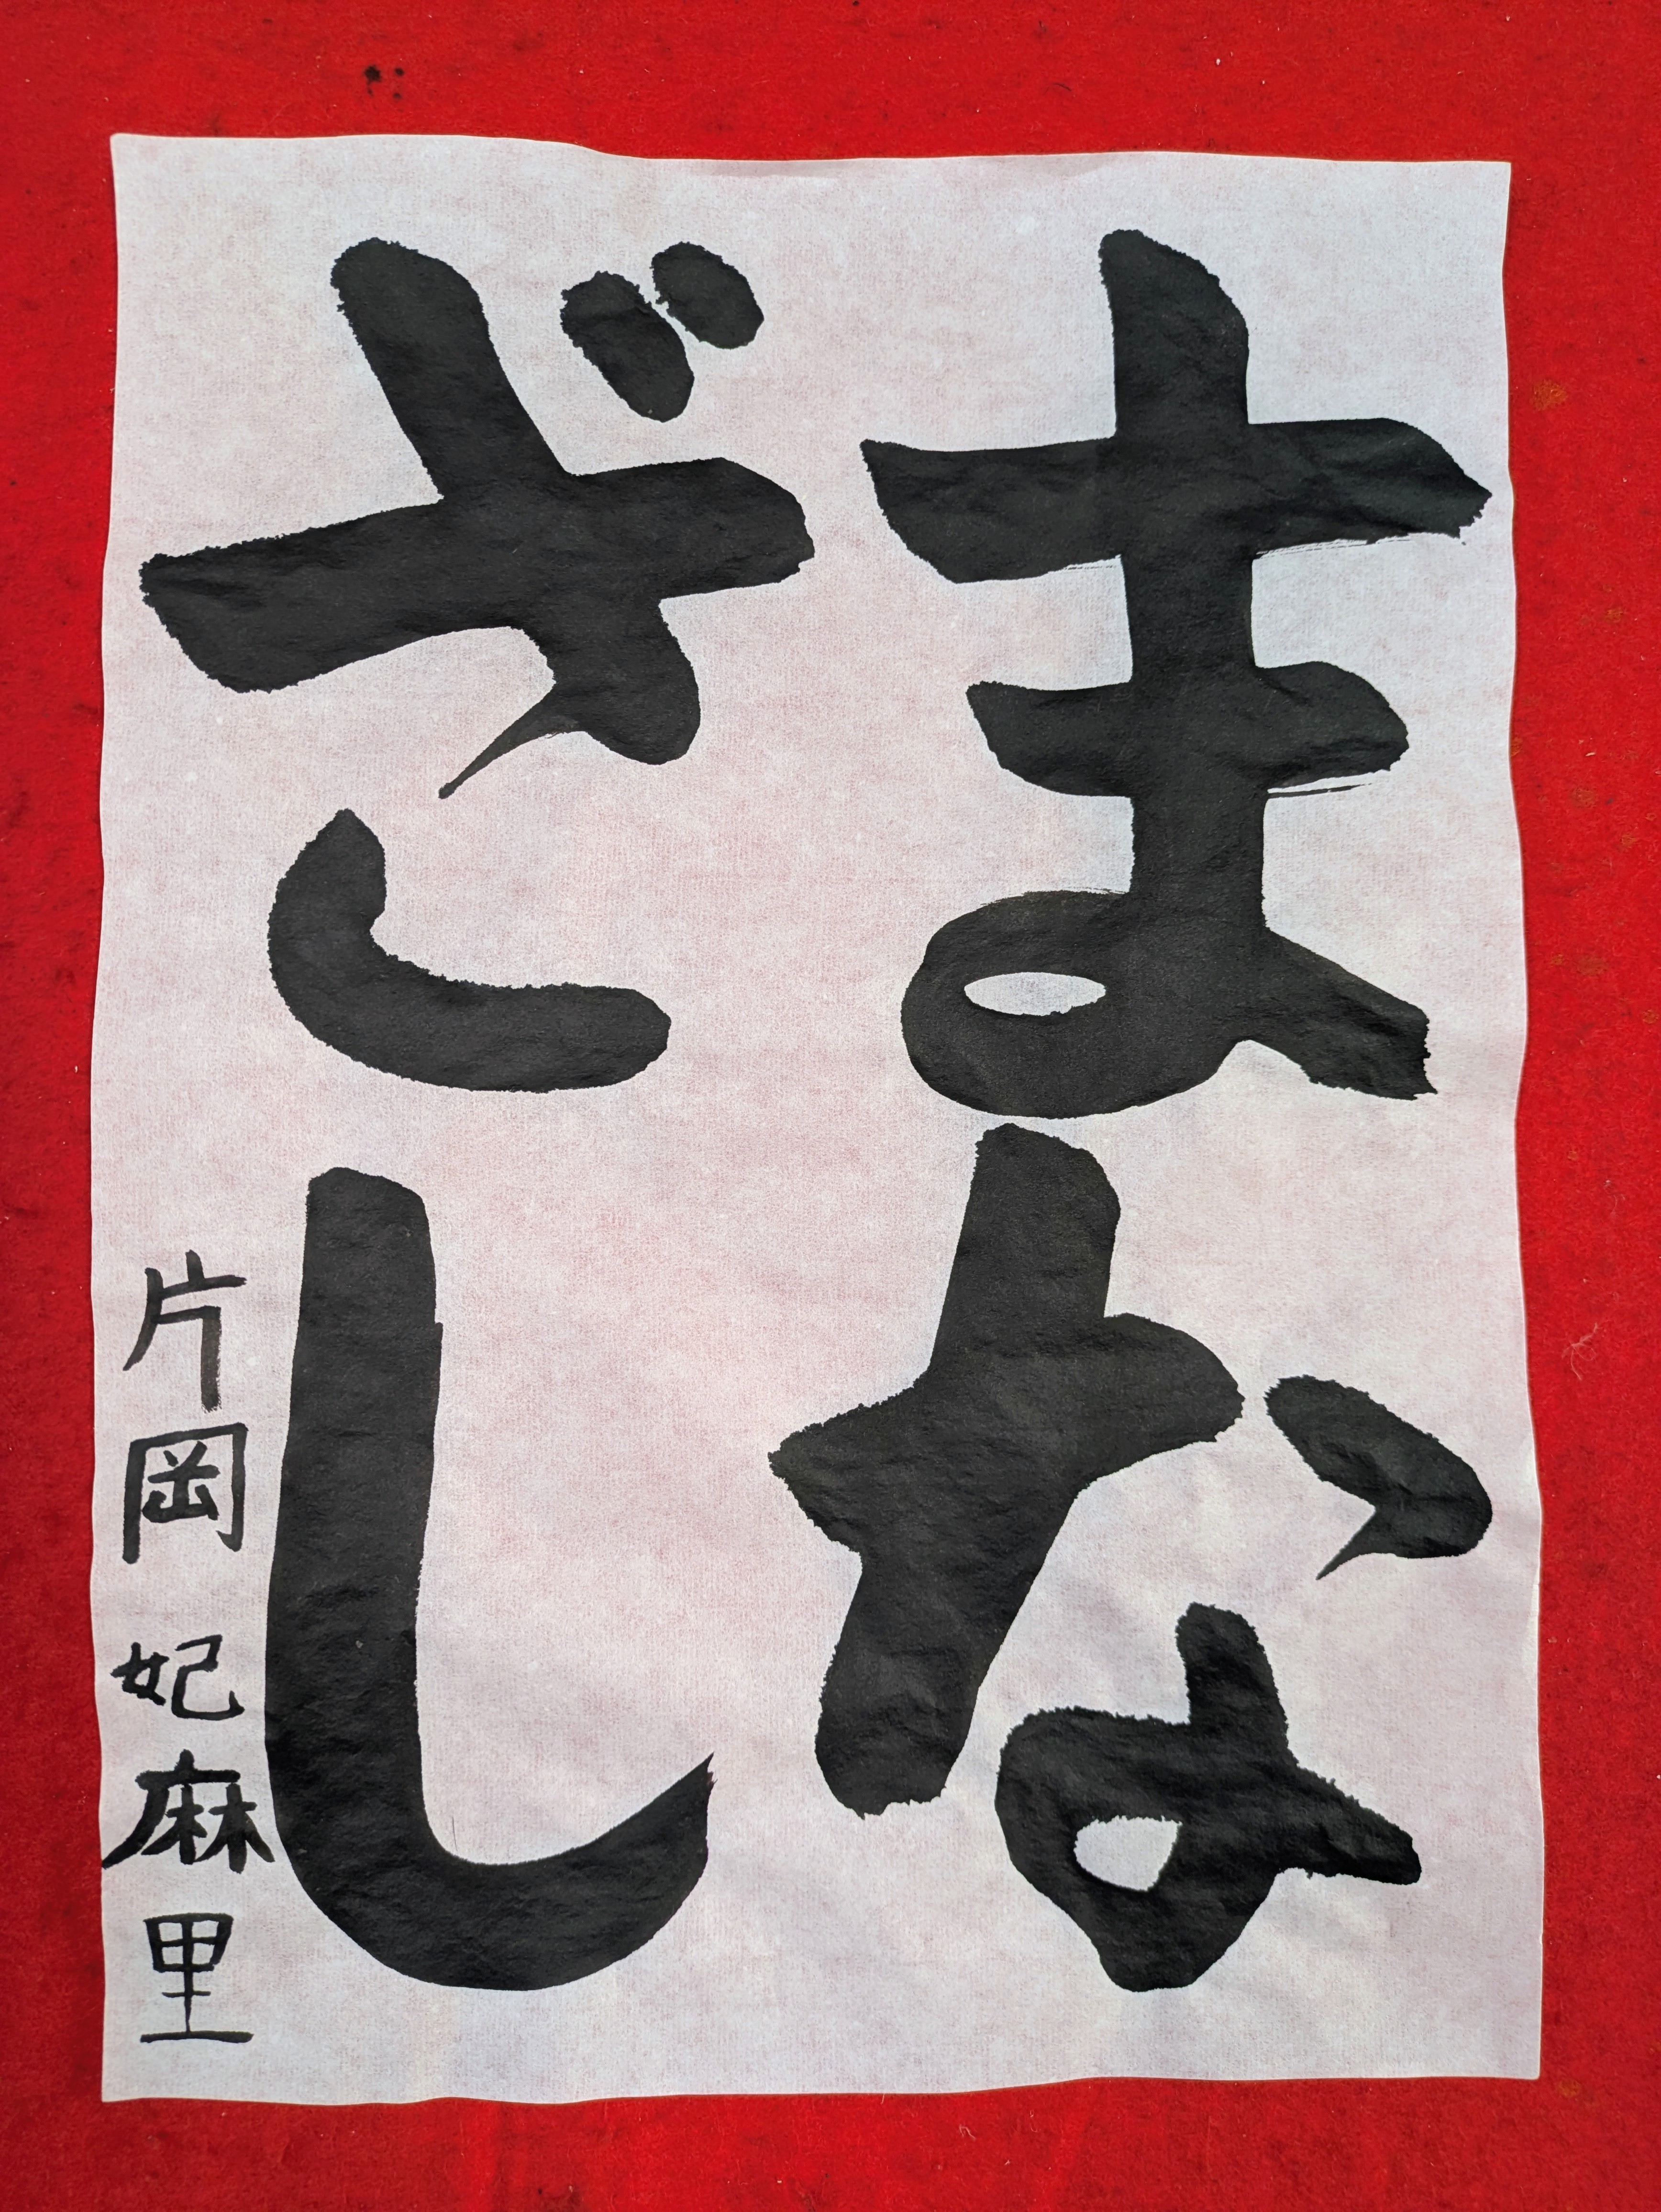 まな
ざし
片岡妃麻里